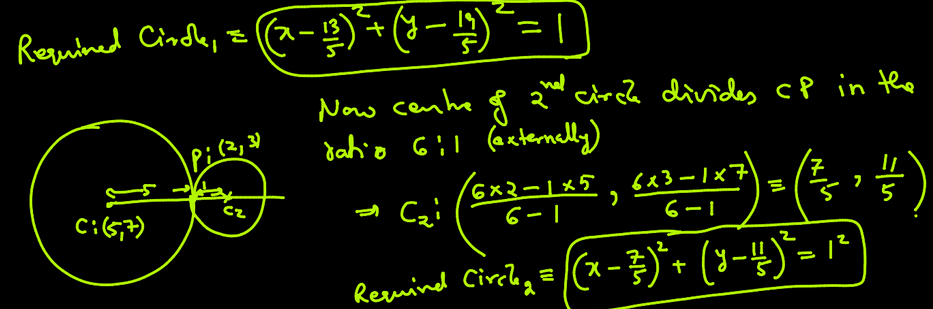 Required Circle₁ ≡ (x - 13/5)² + (y - 19/5)² = 1
Now centre of 2nd circle divides CP in the
ratio 6:1 (externally)
P: (2,3)
5 1
C₂
C: (5,7)
⇒ C₂: ((6×2-1×5)/(6-1), (6×3-1×7)/(6-1)) ≡ (7/5, 11/5)
Required Circle₂ ≡ (x - 7/5)² + (y - 11/5)² = 1²